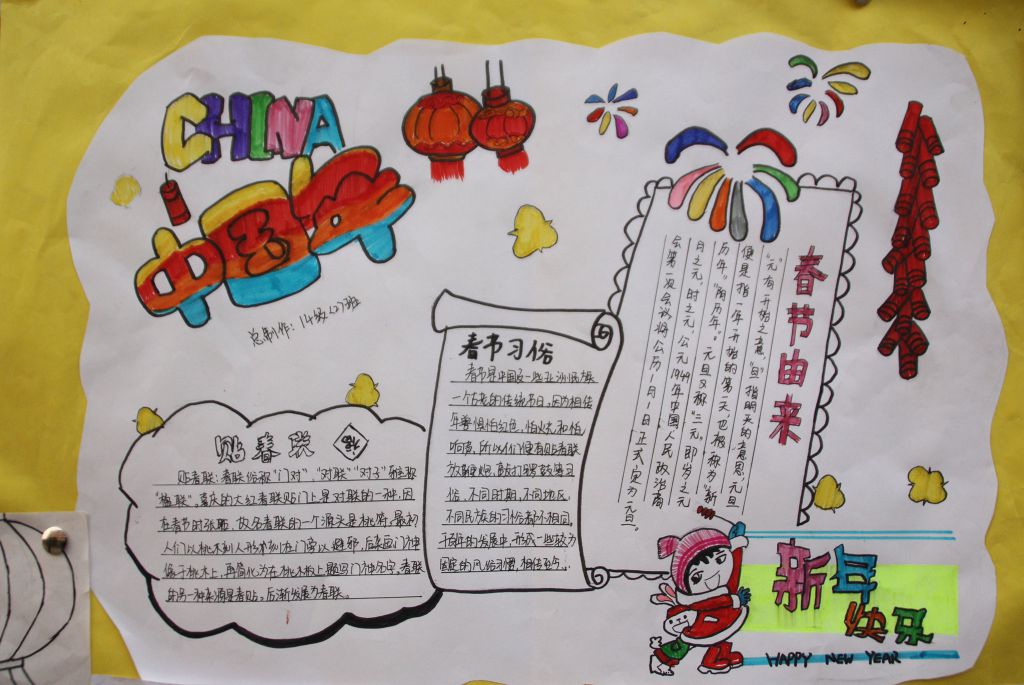 CHINA
中国年
总制作：14级(2)班
春节由来
“元”有开始之意，“旦”指明天的意思，元旦
便是指一年开始的第一天，也被称为“新
历年”“阳历年”。元旦又称“三元”，即岁之元
月之元，时之元，公元1949年中国人民政治商
会第一次会议将公历1月1日正式定为元旦。
春节习俗
春节是中国及一些亚洲民族
一个古老的传统节日，因为相传
年兽惧怕红色，怕火和怕
响声，所以人们便有贴春联
放鞭炮，敲打锣鼓等习
俗，不同时期，不同地区，
不同民族的习俗都不相同，
千百年的发展中，形成一些较为
固定的风俗习惯，相传至今
贴春联
福
贴春联：春联俗称“门对”、“对联”“对子”雅称
“楹联”，喜庆的大红春联贴门上是对联的一种，因
在春节时张贴，故名春联的一个源头是桃符。最初
人们以桃木刻人形挂在门旁以避邪，后来画门神
像于桃木上，再简化为在桃木板上题写门神名字，春联
的另一种来源是春贴，后渐发展为春联。
新年
快乐
HAPPY NEW YEAR